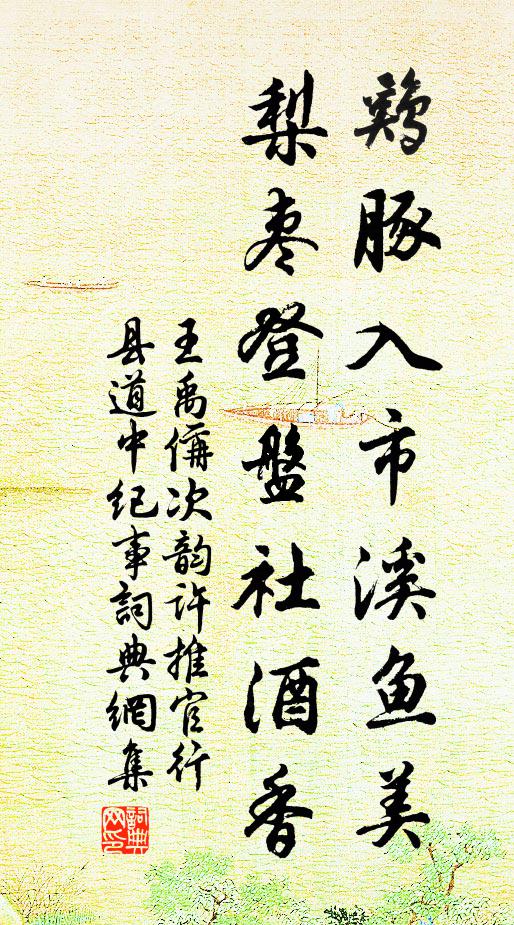 鷄豚入市溪鱼美
梨枣登盤社酒香
王禹偁次韵许推官行
县道中纪事詞典網集
詞典网印